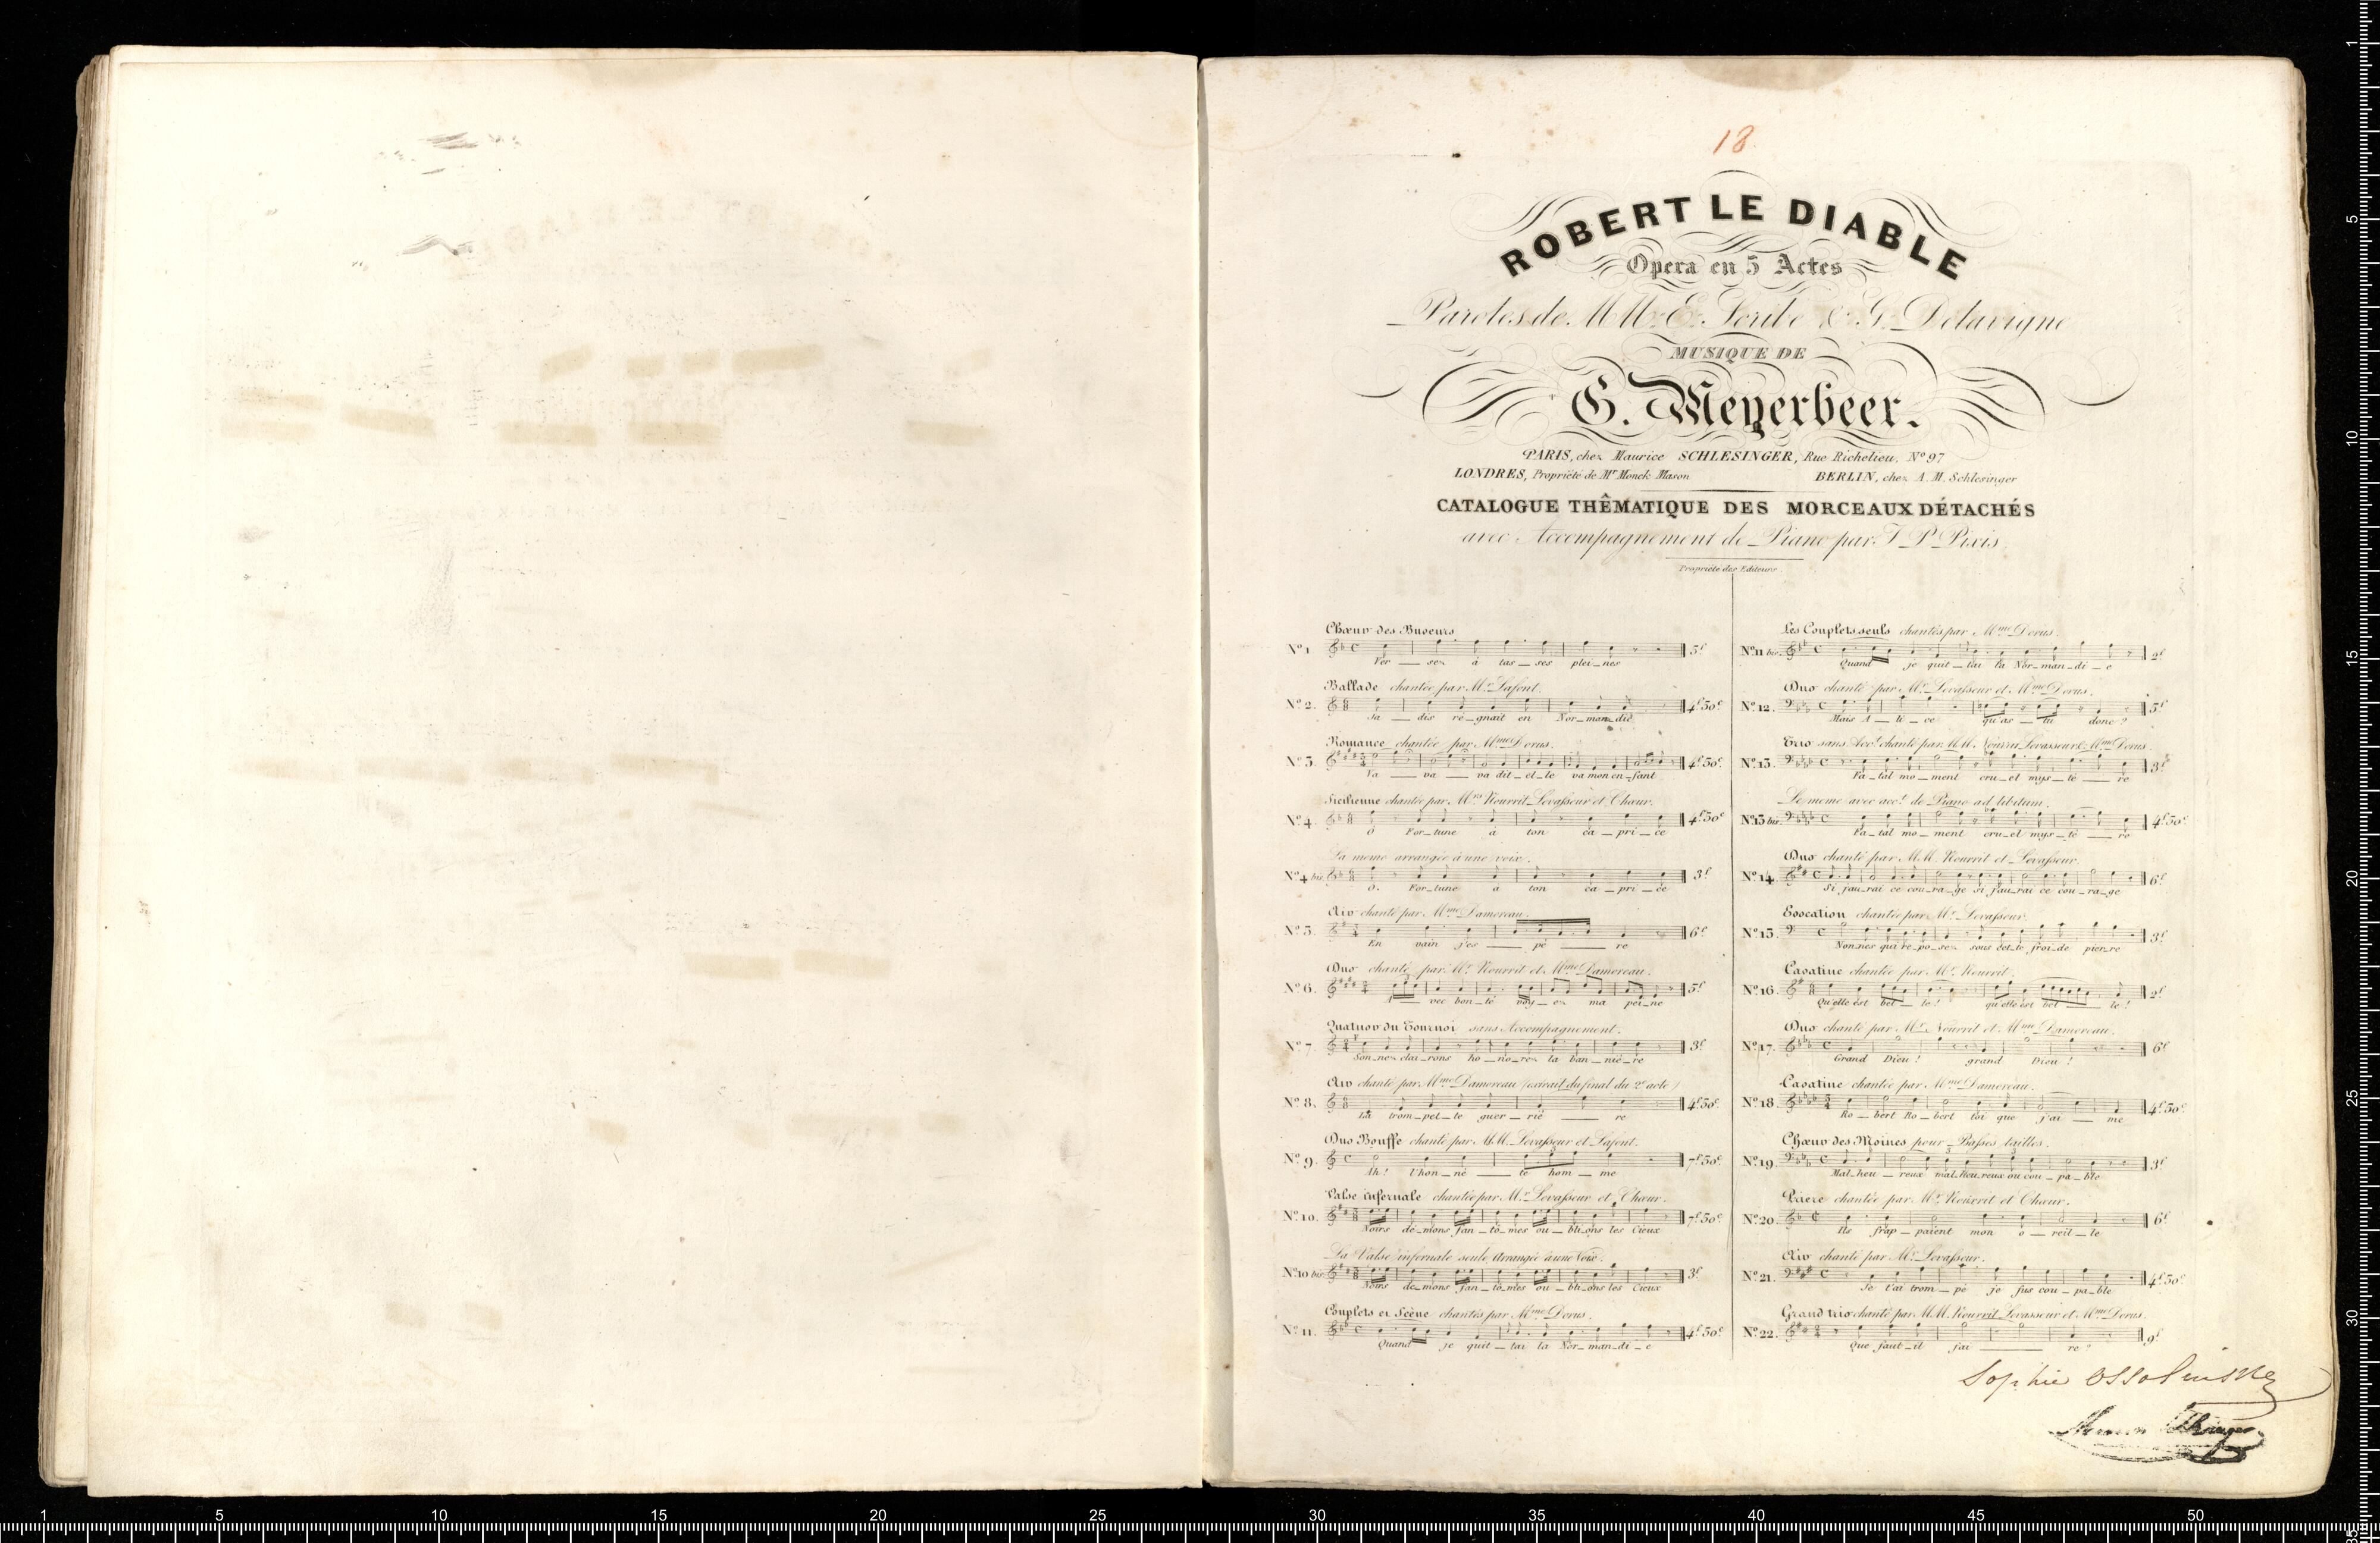 18
ROBERT LE DIABLE
Opera en 5 Actes
Paroles de MM. E. Scribe & G. Delavigne
MUSIQUE DE
G. Meyerbeer.
PARIS, chez Maurice SCHLESINGER, Rue Richelieu, No 97
LONDRES, Propriété de Mr Monck Mason BERLIN, chez A. M. Schlesinger
CATALOGUE THÊMATIQUE DES MORCEAUX DÉTACHÉS
avec Accompagnement de Piano par J. P. Pixis
Propriété des Editeurs.
Chœur des Buveurs
No 1 5f
Ver — sez à tas — ses plei-nes
Ballade chantée par Mr Lafont.
No 2. 4f 50c
Ja — dis ré-gnait en Nor-man-die
Romance chantée par Mme Dorus.
No 3. 4f 50c
Va — va — va dit-el-le va mon en-fant
Sicilienne chantée par Mrs Nourrit Levasseur et Chœur.
No 4 4f 50c
O For-tune à ton ca-pri-ce
La meme arrangée à une voix.
No 4 bis. 3f
O. For-tune à ton ca-pri-ce
Air chanté par Mme Damoreau.
No 5. 6f
En vain j'es — pè — re
Duo chanté par Mr Nourrit et Mme Damoreau.
No 6. 5f
A — vec bon-té voy-ez ma pei-ne
Quatuor du Tournoi sans Accompagnement.
No 7. 3f
Son-nez clai-rons ho-no-rez la ban-niè-re
Air chanté par Mme Damoreau (extrait du final du 2e acte)
No 8. 4f 50c
La trom-pet-te guer-riè — re
Duo Bouffe chanté par MM. Levasseur et Lafont.
No 9. 7f 50c
Ah! l'hon-nê — te hom-me
Valse infernale chantée par Mr Levasseur et Chœur.
No 10. 7f 50c
Noirs dé-mons fan-tô-mes ou-bli-ons les Cieux
La Valse infernale seule Arrangée à une Voix.
No 10 bis 3f
Noirs dé-mons fan-tô-mes ou-bli-ons les Cieux
Couplets et Scène chantés par Mme Dorus.
No 11. 4f 50c
Quand je quit-tai la Nor-man-di-e
Les Couplets seuls chantés par Mme Dorus.
No 11 bis. 2f
Quand je quit-tai la Nor-man-di-e
Duo chanté par Mr Levasseur et Mme Dorus.
No 12. 5f
Mais A-li-ce qu'as-tu donc?
Trio sans Acct chanté par MM. Nourrit Levasseur & Mme Dorus.
No 13. 3f
Fa-tal mo-ment cru-el mys-tè — re
Le meme avec acct de Piano ad libitum.
No 13 bis. 4f 50c
Fa-tal mo-ment cru-el mys-tè — re
Duo chanté par MM. Nourrit et Levasseur.
No 14 6f
Si j'au-rai ce cou-ra-ge si j'au-rai ce cou-ra-ge
Evocation chantée par Mr Levasseur.
No 15. 3f
Non-nes qui re-po-sez sous cet-te froi-de pier-re
Cavatine chantée par Mr Nourrit.
No 16. 2f
Qu'elle est bel-le! qu'elle est bel — le!
Duo chanté par Mr Nourrit et Mme Damoreau.
No 17. 6f
Grand Dieu! grand Dieu!
Cavatine chantée par Mme Damoreau.
No 18. 4f 50c
Ro-bert Ro-bert toi que j'ai — me
Chœur des Moines pour Basses tailles.
No 19. 3f
Mal-heu-reux mal-heu-reux ou cou-pa-ble
Priere chantée par Mr Nourrit et Chœur.
No 20. 6f
Ils frap-paient mon o-reil-le
Air chanté par Mr Levasseur.
No 21. 4f 50c
Je t'ai trom-pé je fus cou-pa-ble
Grand trio chanté par MM. Nourrit Levasseur et Mme Dorus.
No 22. 9f
Que faut-il fai — re?
Sophie Ossolinska